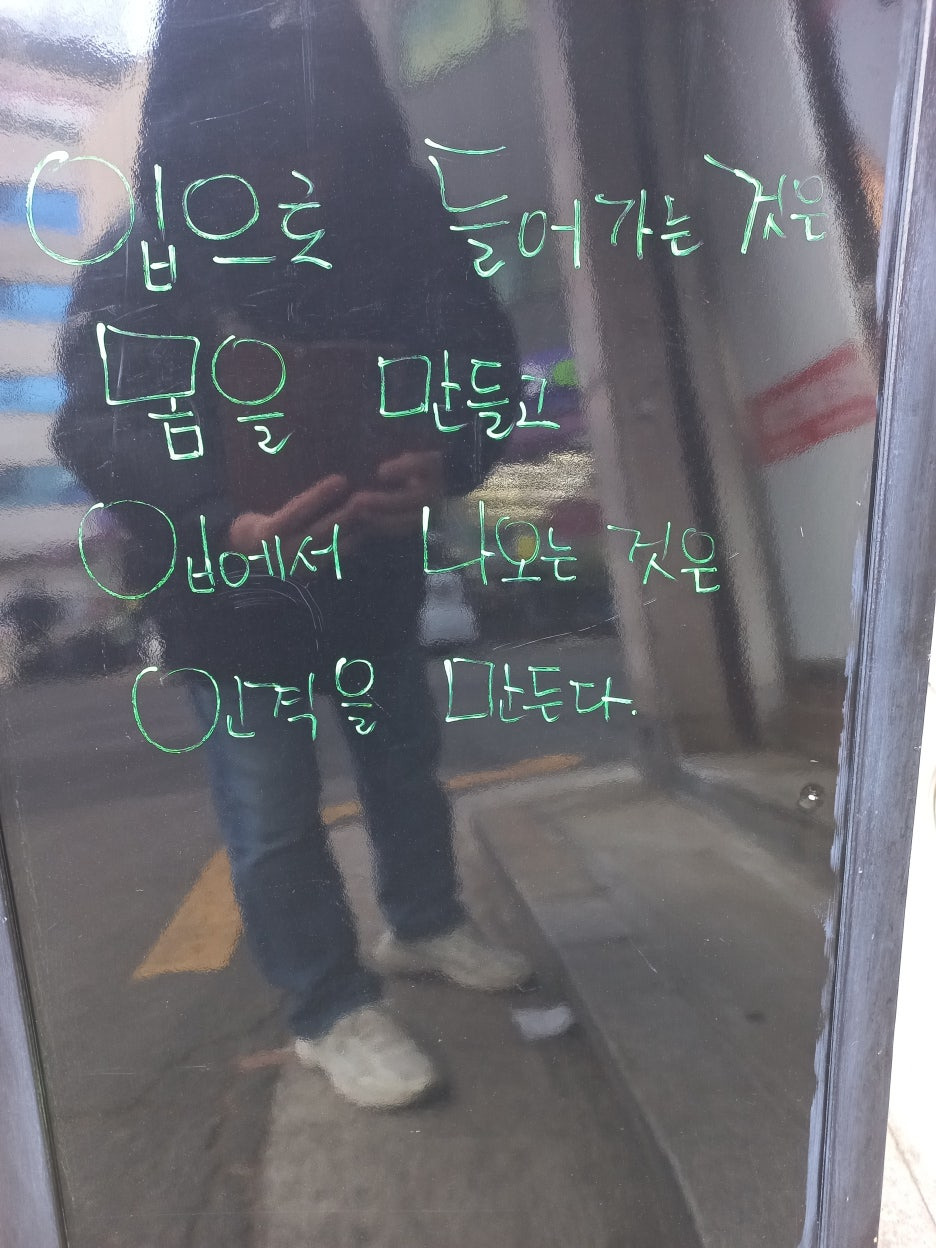 입으로 들어가는 것은
몸을 만들고
입에서 나오는 것은
인격을 만든다.